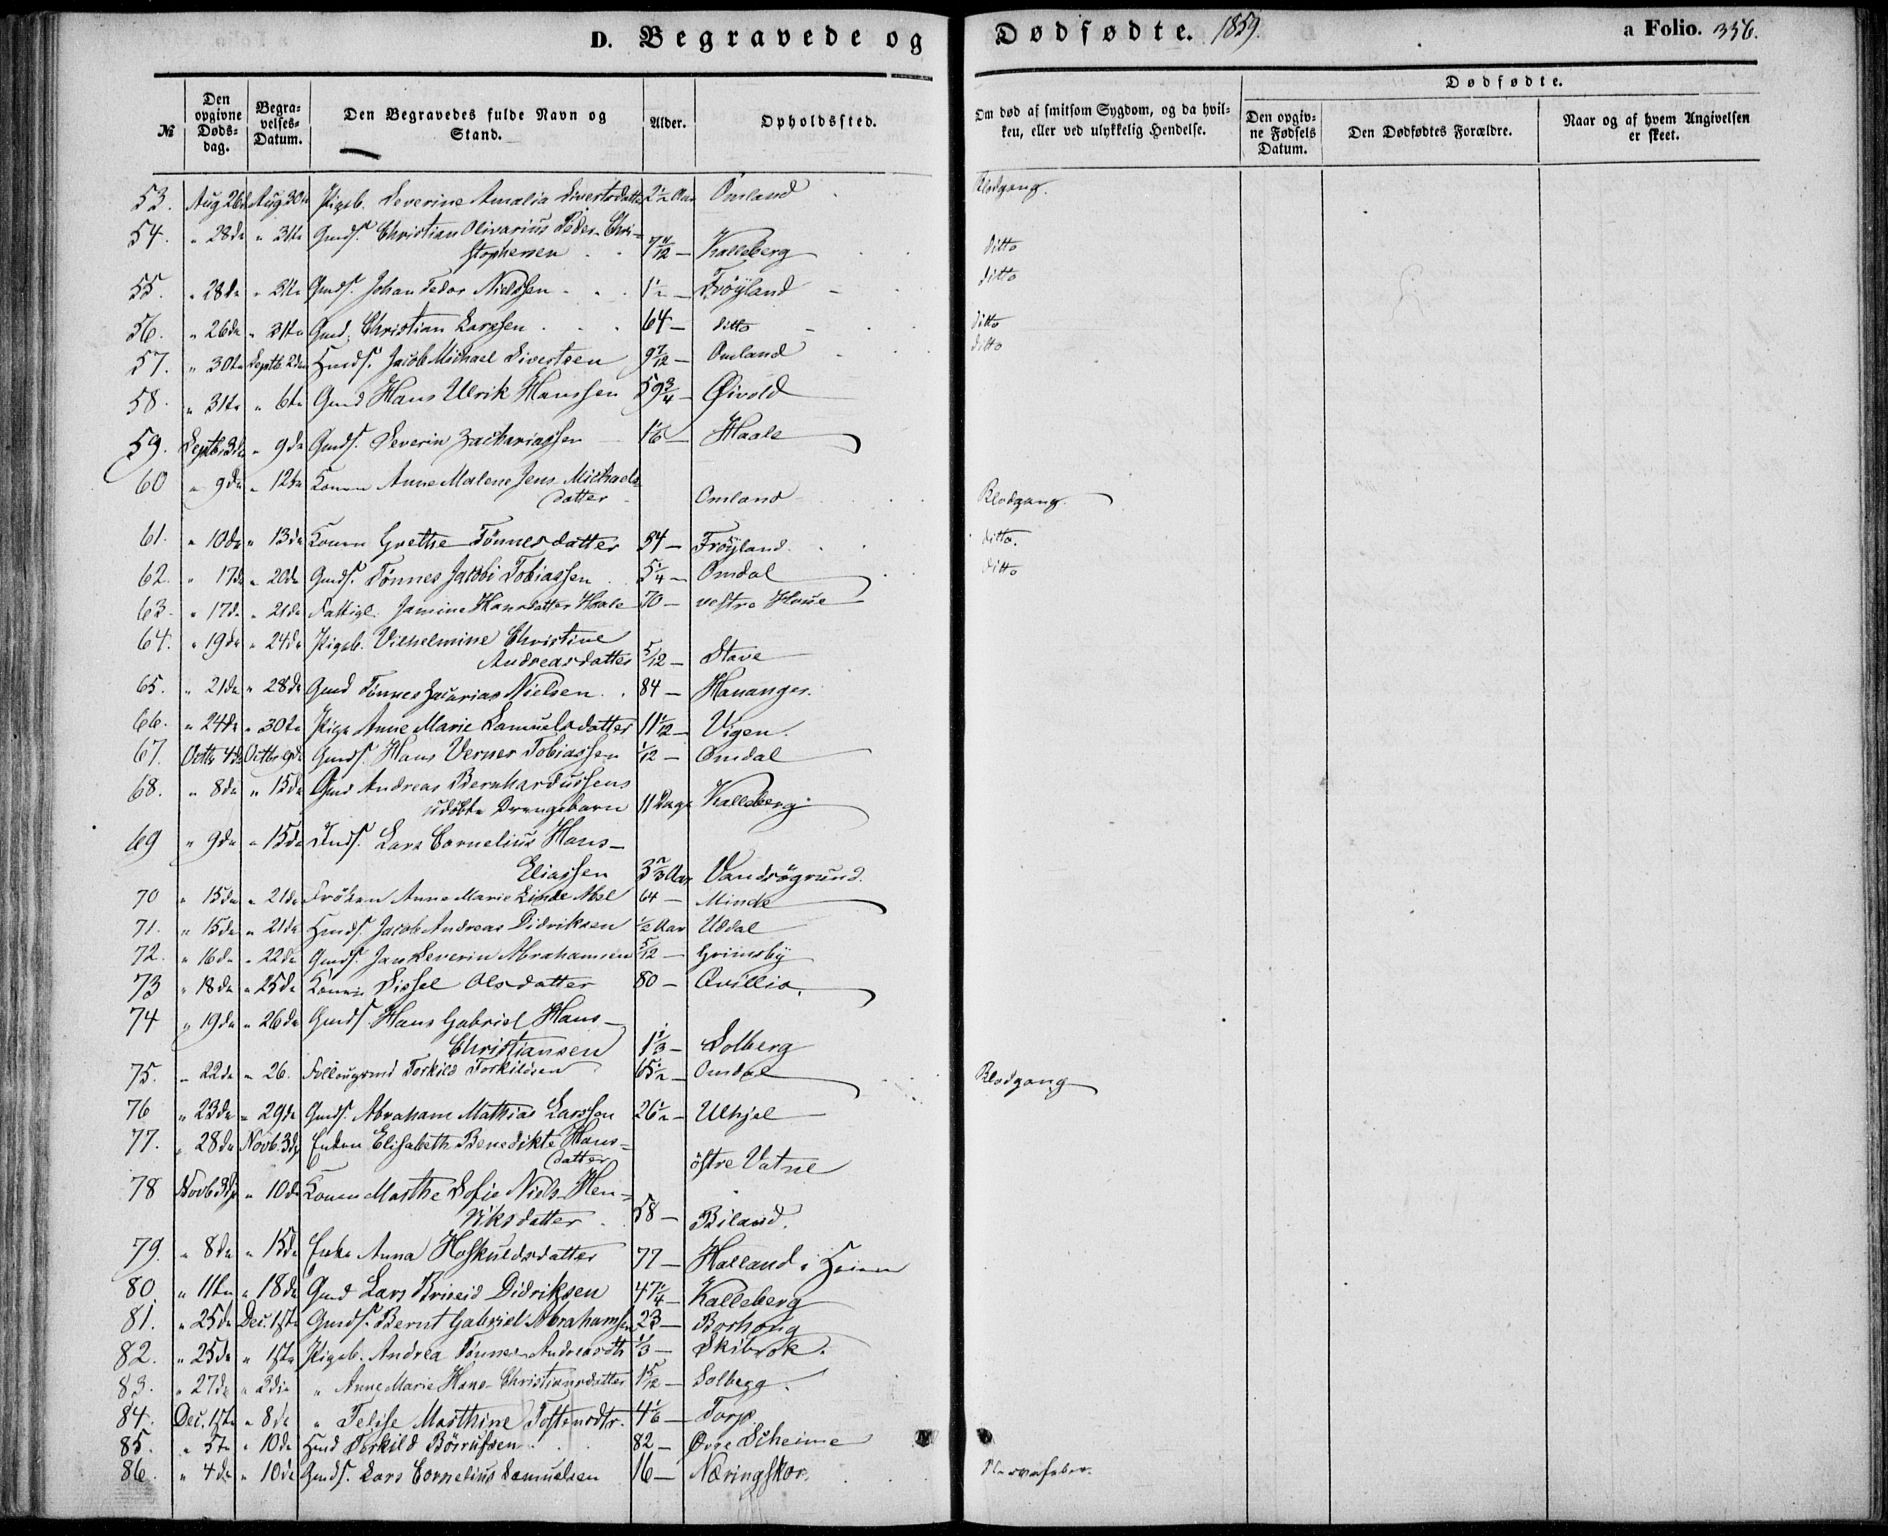 D. Begravede og Dødfødte. 1859. a Folio. 356.
Dødfødte.
№ Den opgivne Døds-dag. Begra-velses-Datum. Den Begravedes fulde Navn og Stand. Alder. Opholdssted. Om død af smitsom Sygdom, og da hvil-ken, eller ved ulykkelig Hendelse. Den opgiv-ne Fødsels Datum. Den Dødfødtes Forældre. Naar og af hvem Angivelsen er skeet.
53. Aug 26de Aug 30te Pigeb. Severine Amalia Sivertsdatter 2½ Aar Omland Blodgang.
54. " 28de " 31te Gmds. Christian Olivarius Peder Chri=
stophersen 7 /12 — Kalleberg ditto
55. " 28de " 31te Gmds. Johan Tedor Nielssen 1½ — Frøyland ditto
56. " 26de " 31te Gmd. Christian Larssen 64 — ditto ditto
57. " 30te Septb. 2den Hmds. Jacob Michael Sivertsen 9 7/12 — Omland ditto
58. " 31te " 6te Gmd Hans Ulrik Hanssen 59¾ — Øivold
59. Septb. 3de " 9de Gmds. Severin Zachariassen 1/6 — Haale
60 " 9de " 12te Konen Anne Malene Jens Michaels-
datter Omland Blodgang.
61. " 10de " 13de Konen Grethe Tønnesdatter 34 — Frøyland. ditto.
62. " 17de " 20de Gmds. Tønnes Jakobi Tobiassen 5¼ — Omdal ditto
63. " 17de " 21de Fattigl. Jamine Hansdatter Haale 70 — vestre Houe
64. " 19de " 24de Pigeb. Vilhelmine Christine
Andreasdatter 5/12 — Stave
65. " 21de " 28de Gmd Tønnes Zacarias Nielsen 84 — Hananger.
66. " 24de " 30te Pige Anne Marie Samuelsdatter 11 1/12 — Vigen.
67. Octb. 4de Octbr 9de Gmds. Hans Verner Tobiassen 1/12 — Omdal
68. " 8de " 15de Gmd Andreas Bernhardussens
udøbte Drengebarn 11 Dage Kalleberg
69 " 9de " 15de Inds. Lars Cornelius Hans-
Eliassen 3 /3 Aar Vandsøgrund.
70 " 15de " 21de Frøken Anne Marie Linde Abel 64 — Minde
71. " 15de " 21de Hmds. Jacob Andreas Didriksen ½ Aar Uddal
72. " 16de " 22de Gmds. Jan Severin Abrahamsen 5/12 — Grimsby
73 " 18de " 25de Konen Sissel Olsdatter 80 — Qvillio.
74 " 19de " 26de Gmds. Hans Gabriel Hans-
Christiansen 1⅓ — Solberg
75. " 22de " 26. Torkild Torkildsen 65½ — Omdal Blodgang
76 " 23de " 29de Gmds. Abraham Mathias Larssen 26½ — Ulhjel
77. " 28de Novb. 3de Enken Elisabeth Benedikte Hans=
datter østre Vatne
78 Novb 3de " 10de Konen Marthe Sofie Niels-Hen=
riksdatter 58 — Biland.
79. " 8de " 15de Enke Anna Hoskuldsdatter 77 — Halland i Heien
80. " 11te " 18de Gmd Lars Briseid Didriksen 47 /4 — Kalleberg
81. " 25de Dec. 1ste Gmds. Bernt Gabriel Abrahamsen 23 — Borhoug
82. " 25de " 1ste Pigeb. Andrea Tønnes Andreasdtr ⅓ — Skibrok.
83. " 27de " 3die " Anne Marie Hans-Christiansdatter 1 5/12 — Solberg.
84. Dec. 1ste " 8de " Telise Marthine Tostensdtr. 4 1/6 — Torp
85. " 5te " 10de Hmd Torkild Børrufsen 82 — Øvre Scheime
86. " 4de " 10de Gmds. Lars Cornelius Samuelsen 16 — Næringskor. Nervefeber.